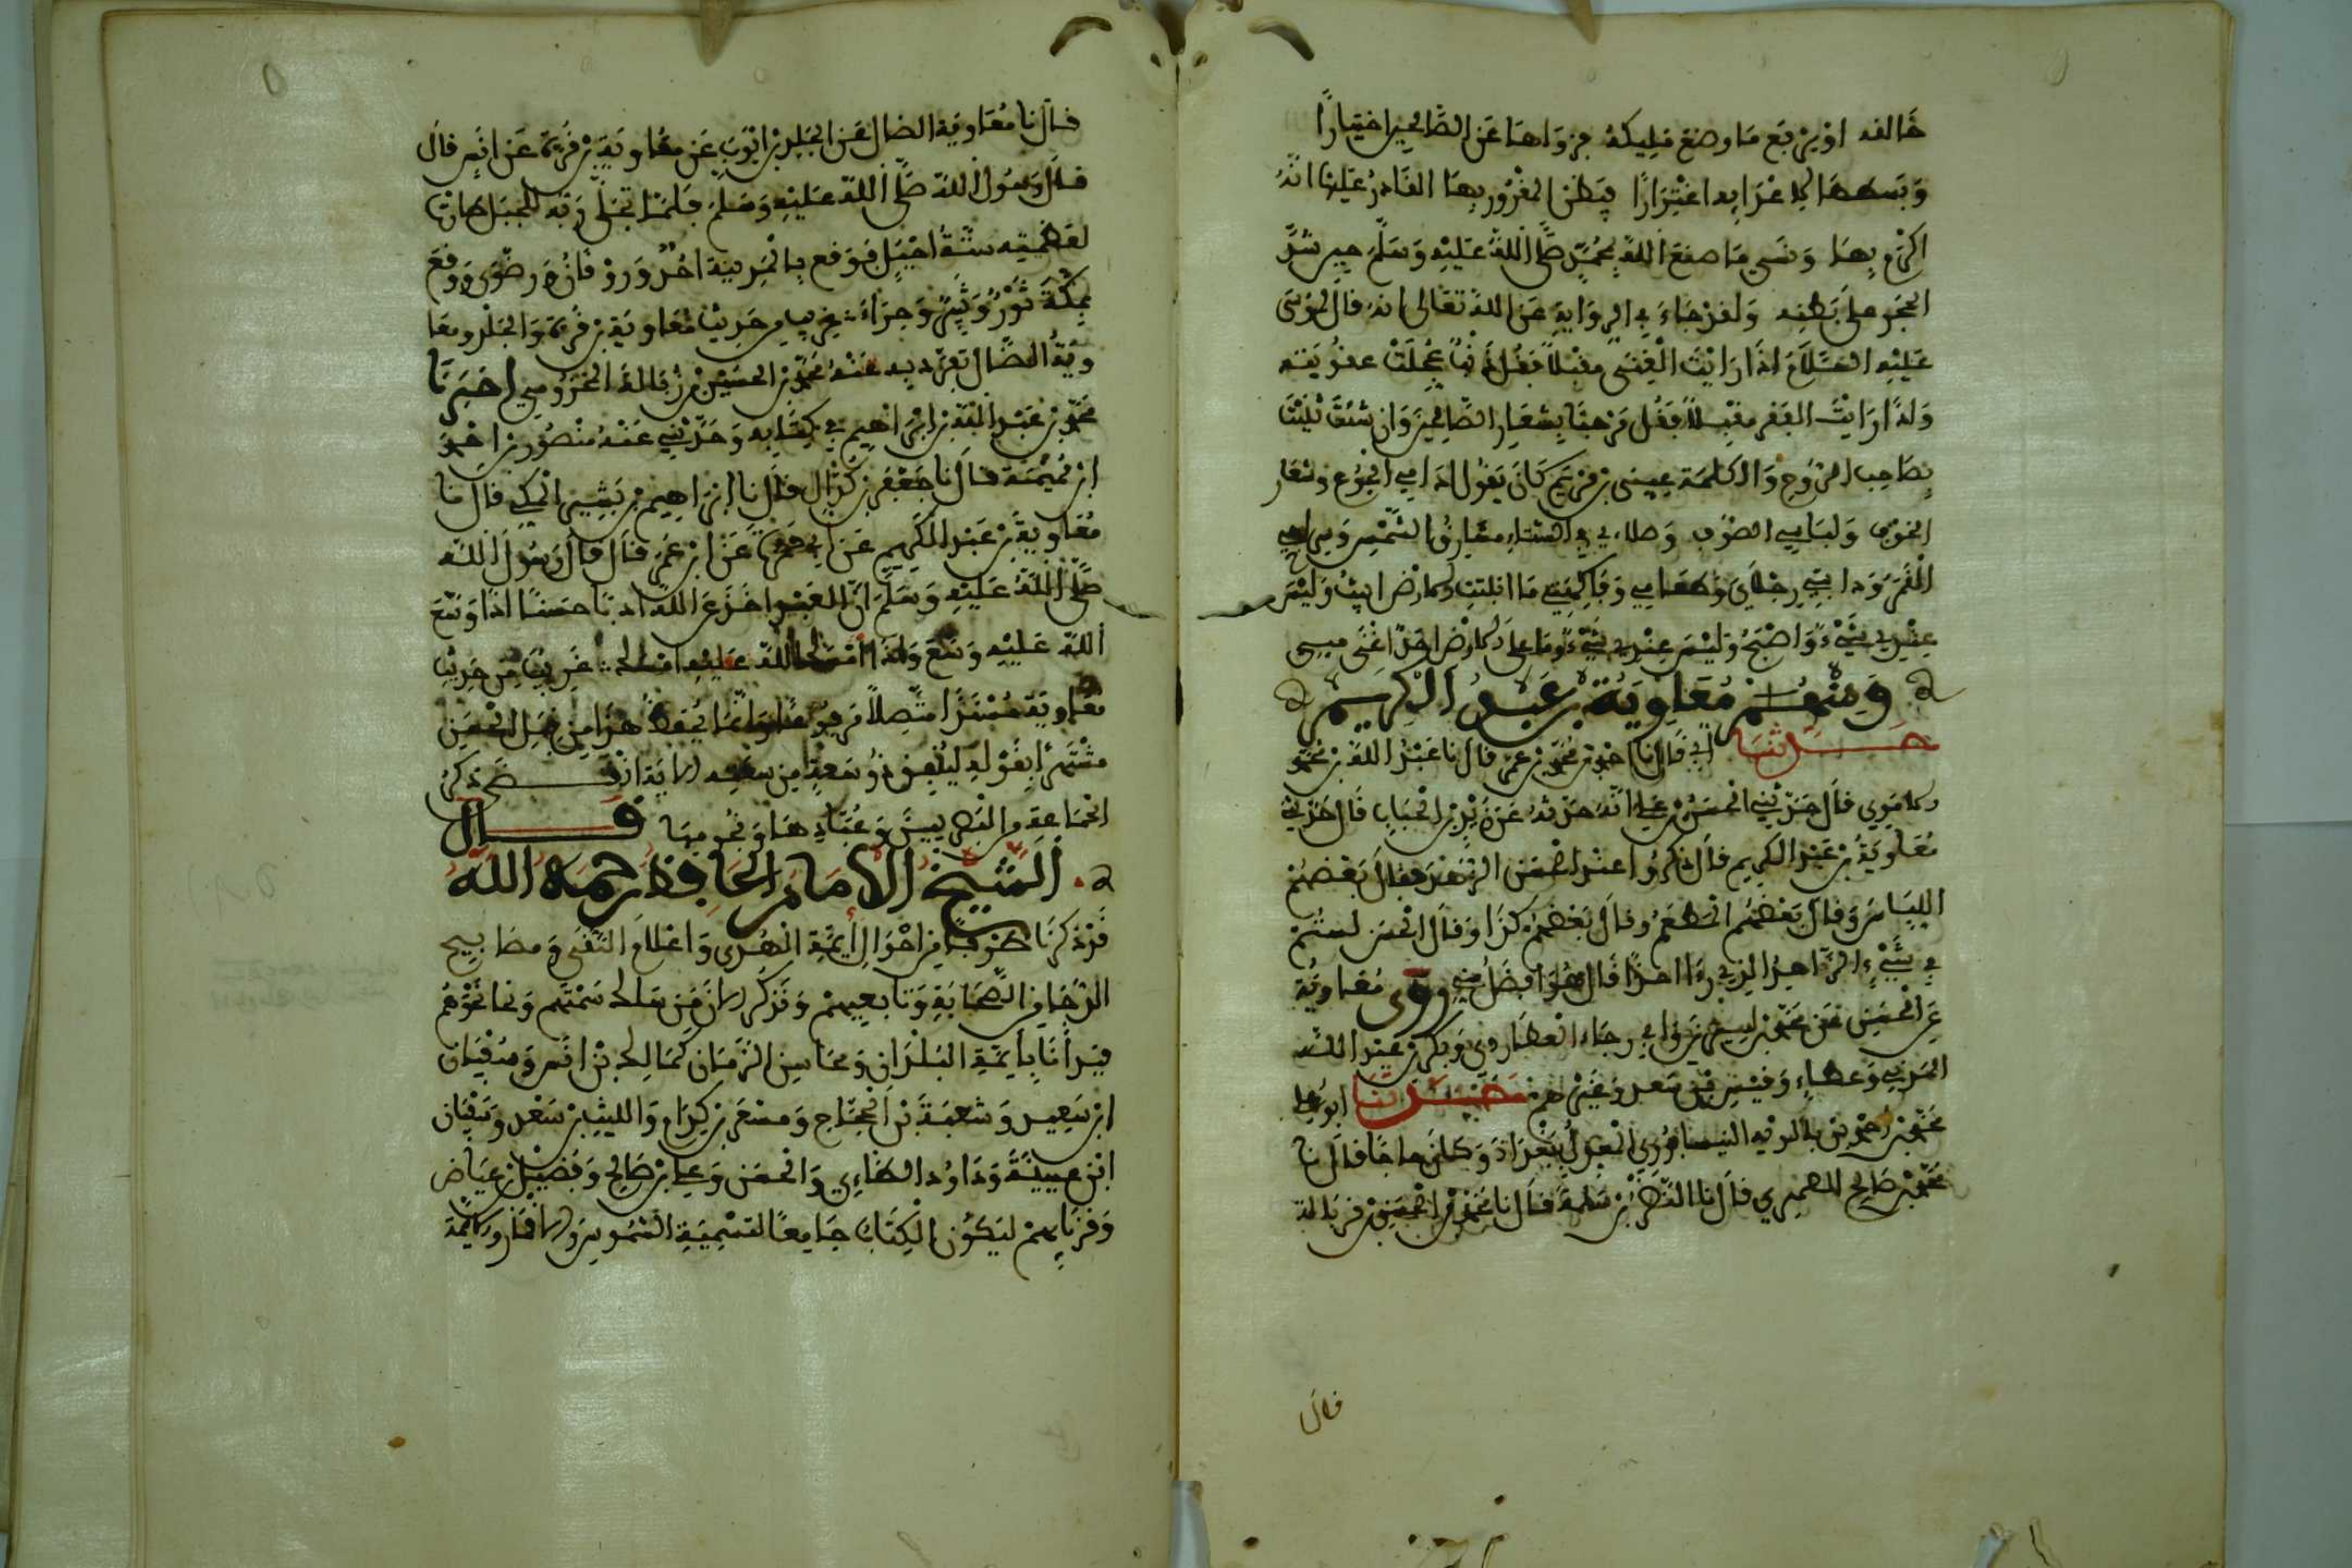 خالقه او يرفع ما وضع مليكه فزواها عن الصالحين اختيارا
وبسطها لاعدايه اغترارا فيظن المغرور بها القادر عليها انه
اكرم بها ونسي ما صنع الله بمحمد صلى الله عليه وسلم حين شد
الحجر على بطنه ولقد جاء في الرواية عن الله تعالى انه قال لموسى
عليه السلام اذا رايت الغنى مقبلا فقل ذنب عجلت عقوبته
واذا رايت الفقر مقبلا فقل مرحبا بشعار الصالحين وان شئت ثلثت
بصاحب الروح والكلمة عيسى بن مريم كان يقول ادامي الجوع وشعار
الخوف ولباسي الصوف وصلاءي في الشتاء مشارق الشمس وسراجي
القمر ودابتي رجلاي وطعامي وفاكهتي ما انبتت الارض ابيت وليس
عندي شيء واصبح وليس عندي شيء وما على الارض احد اغنى مني
ومنهم معاوية بن عبد الكريم
حدثنا ابي قال نا احمد بن محمد بن عمر قال نا عبد الله بن محمد
الاموي قال حدثني الحسن بن علي انه حدثه عن زيد بن الحباب قال حدثني
معاوية بن عبد الكريم قال ذكروا عند الحسن الزهد فقال بعضهم
اللباس وقال بعضهم المطعم وقال بعضهم كذا وقال الحسن لستم
في شيء الزاهد الذي اذا راى احدا قال هو افضل مني وروى معاوية
عن الحسن عن محمد بن سيرين وابي رجاء العطاردي وبكر بن عبد الله
المزني وعطاء وقيس بن سعد وغيرهم حدثنا ابو علي
محمد بن احمد بن بالويه النيسابوري المعدل ببغداد وكان حاجا قال نا
محمد بن صالح الصميري قال نا النضر بن سلمة قال نا محمد بن الحسن بن زبالة
قال
قال نا معاوية الضال عن الجلد بن ايوب عن معاوية بن قرة عن انس قال
قال رسول الله صلى الله عليه وسلم فلما تجلى ربه للجبل طارت
لعظمته ستة اجبل فوقع بالمدينة احد وورقان ورضوى ووقع
بمكة ثور وثبير وحراء غريب من حديث معاوية بن قرة والجلد ومعا
وية الضال تفرد به عنه محمد بن الحسن بن زبالة المخزومي اخبرنا
محمد بن عبد الله بن ابراهيم في كتابه وحدثني عنه منصور بن احمد
ابن مميمة قال نا جعفر بن كزال قال نا ابراهيم بن بشير المكي قال نا
معاوية بن عبد الكريم عن ابي حمزة عن ابن عمر قال قال رسول الله
صلى الله عليه وسلم ان العبد اخذ عن الله ادبا حسنا اذا وسع
الله عليه وسع واذا امسك الله عليه امسك غريب من حديث
معاوية مسندا متصلا مرفوعا وانما يحفظ هذا من قول الحسن
مشتهرا بقوله لينفق ذو سعة من سعته الاية انقضى ذكر
الجماعة من البصريين وعبادها ونجومها قال
الشيخ الامام الحافظ رحمه الله
قد ذكرنا طرفا من احوال ايمة الهدى واعلام التقى ومصابيح
الدجا من الصحابة وتابعيهم ونذكر الان من سلك سمتهم ونحا نحوهم
فبدانا بايمة البلدان ومحاسن الزمان كمالك بن انس وسفيان
ابن سعيد وشعبة بن الحجاج ومسعر بن كدام والليث بن سعد وسفيان
ابن عيينة وداود الطاءي والحسن وعلي بن صالح وفضيل بن عياض
وقرنايهم ليكون الكتاب جامعا لتسمية الشموس والاقمار وايمة